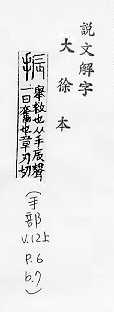 説文解字
大徐本
振
舉救也从手辰聲
一曰奮也章刃切
(手部
V.12上
P.6
b.7)